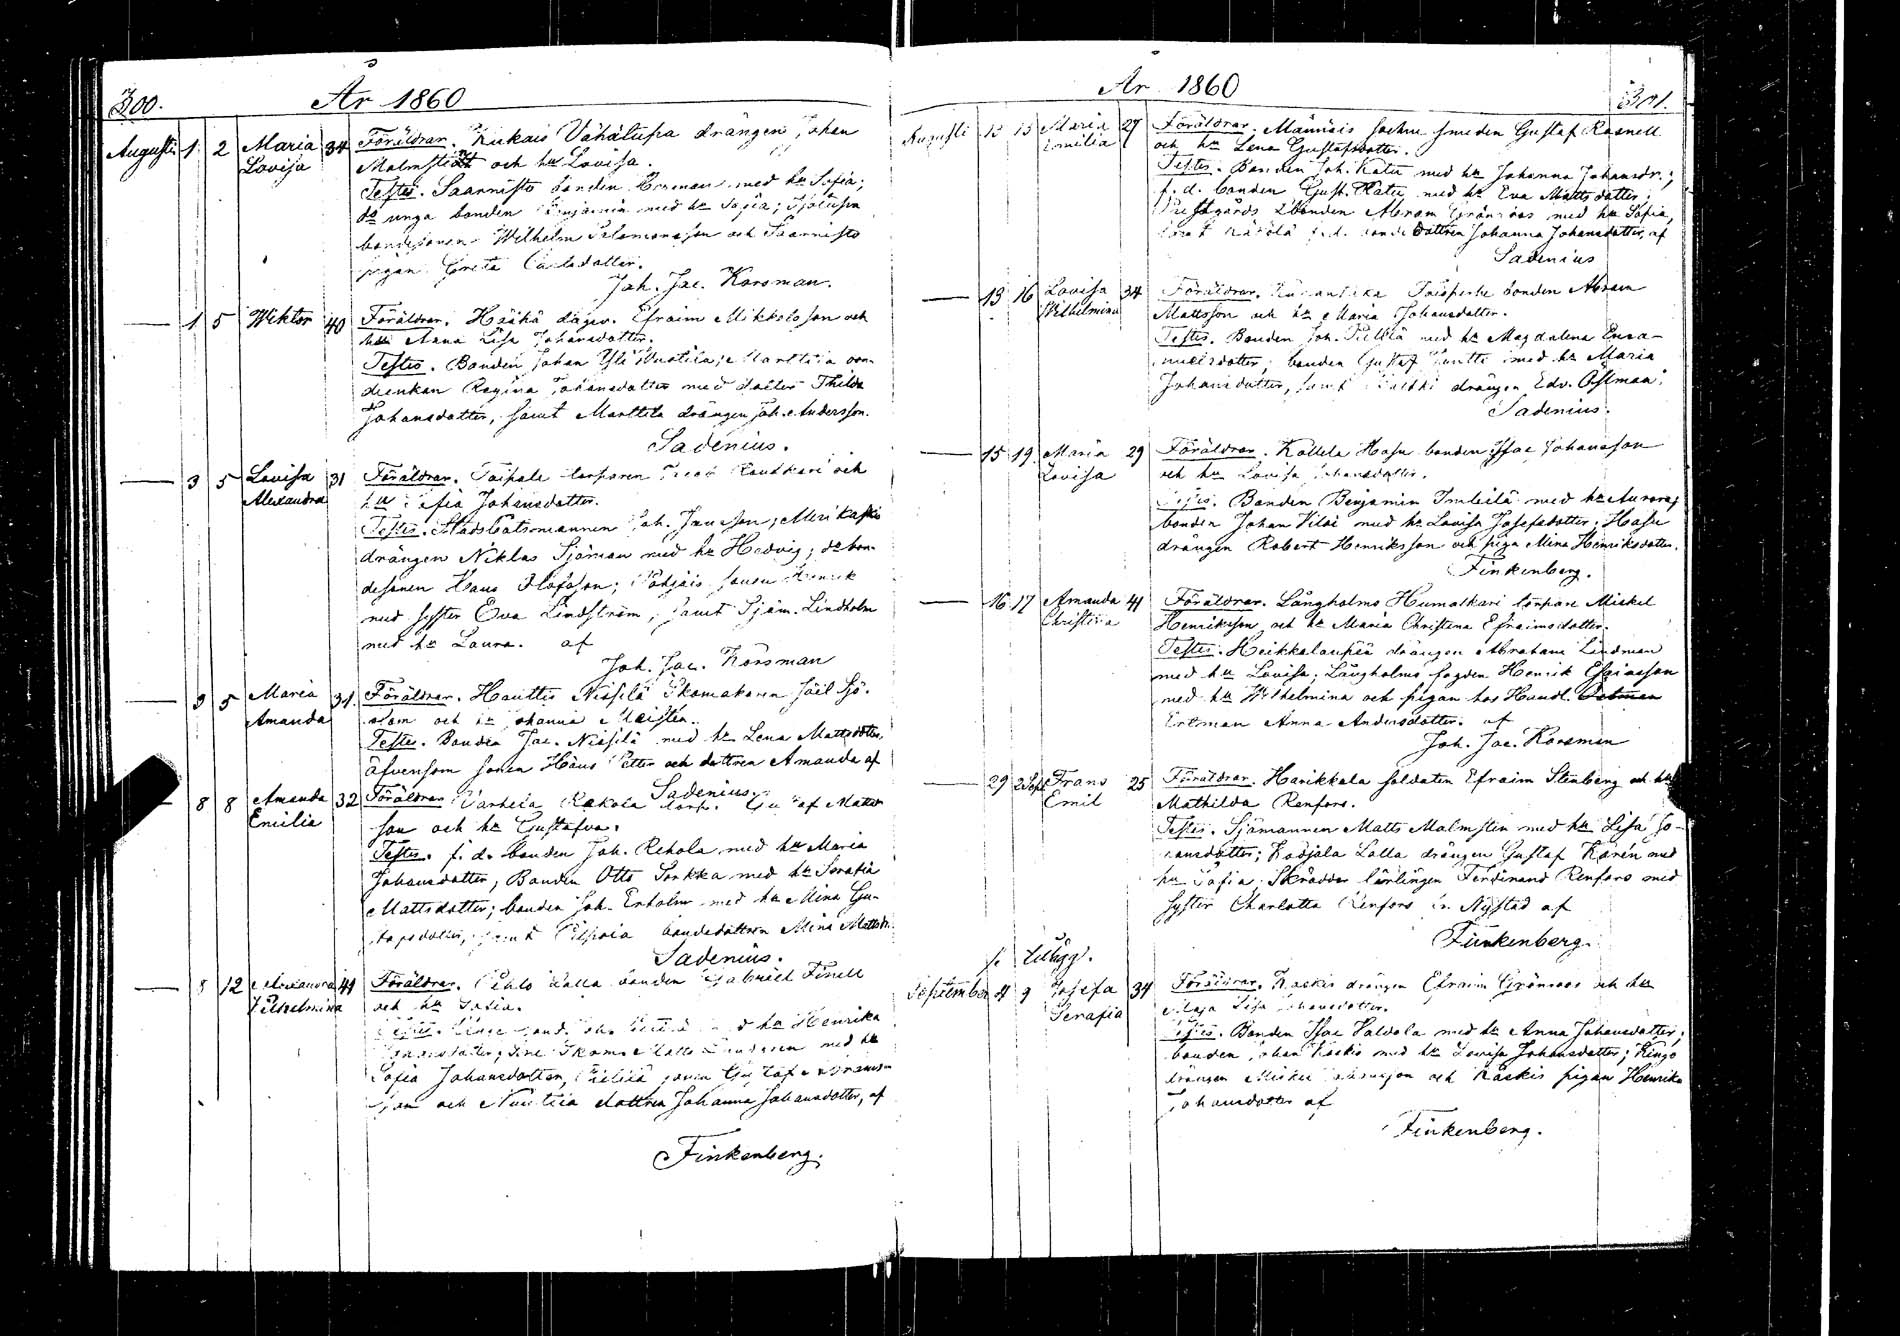 300.
År 1860
Augusti 1 2 Maria 34 Föräldrar. Kukais Vähätupa drängen Johan
Lovisa Malmstedt och hu Lovisa.
Testes. Saarnisto bonden Herman med hu Sofia;
do unga bonden Benjamin med hu Sofia;
bondesonen Wilhelm Salomonsson och Saarnisto
pigan Greta Carlsdotter.
Joh. Jac. Korsman.
— 1 5 Wiktor 40 Föräldrar. Häähä Efraim Mikkolason och
Anna Lisa Johansdotter.
Testes. Bonden Johan Yli Marttila bon-
deenkan Regina Johansdotter med dotter Thilda
Johansdotter, samt Marttila drängen Joh. Andersson.
Sadenius.
— 3 5 Lovisa 31 Föräldrar. Taipale torparen och
Alexandra hu Sofia Johansdotter.
Testes. Stadsbåtsmannen Joh. Jansson; Merikaski
drängen Niklas Sjöman med hu Hedvig; do bon-
desonen Hans Olofsson; sonen Henrik
med syster Eva Lindström, samt Sjöm. Lindholm
med hu Laura. af
Joh. Jac. Korsman
— 3 5 Maria 31 Föräldrar. Hauttis Nissilä Skomakaren Joel Sjö-
Amanda och hu Johanna
Testes. Bonden Jac. Nissilä med hu Lena Mattsdotter,
äfvensom sonen Hans Petter och dottren Amanda af
Sadenius.
— 8 8 Amanda 32 Föräldrar Varhela Rekola torp. Gustaf Matts
Emilia son och hu Gustafva.
Testes. f. d. bonden Joh. Rekola med hu Maria
Johansdotter; Bonden Otto Sorkka med hu Serafia
Mattsdotter; bonden Joh. Erholm med hu Mina Gu-
stafsdotter, samt bondedottren Mina Mattsdr.
Sadenius.
— 8 12 Alexandra 41 Föräldrar. Lalla bonden Gabriel Finell
Vilhelmina och hu Sofia.
Testes. hu Henrika
med hu
Sofia Johansdotter, sonen Gustaf Abrams-
son och dottren Johanna Johansdotter, af
Finkenberg.
År 1860
301.
Augusti 12 15 Maria 27 Föräldrar. Männäis sochn smeden Gustaf Rosnell
Emilia och hu Lena Gustafsdotter.
Testes. Bonden Joh. Katu med hu Johanna Johansdr.;
f. d. bonden Gust. Katu med hu Eva Mattsdotter;
Prestgårds bonden Abram Grönroos med hu Sofia,
samt f. d. bonde dottren Johanna Johansdotter, af
Sadenius
— 13 16 Lovisa 34 Föräldrar. bonden Abram
Wilhelmina Mattsson och hu Maria Johansdotter.
Testes. Bonden Joh. med hu Magdalena Ema-
nuelsdotter; bonden Gustaf med hu Maria
Johansdotter, samt drängen Edv. Östman;
Sadenius.
— 15 19 Maria 29 Föräldrar. Kollela Hasu bonden Isac Johansson
Lovisa och hu Lovisa Johansdotter.
Testes. Bonden Benjamin med hu Aurora;
bonden Johan med hu Lovisa Josefsdotter; Hasu
drängen Robert Henriksson och piga Mina Henriksdotter.
Finkenberg.
— 16 17 Amanda 41 Föräldrar. Långholms Humalkari torpare Mickel
Christina Henriksson och hu Maria Christina Efraimsdotter.
Testes. drängen Abraham Lindman
med hu Lovisa; Långholms fogden Henrik Esaiasson
med hu Wilhelmina och pigan hos Handl.
Ertman Anna Andersdotter. af
Joh. Jac. Korsman
— 29 2 Sept. Frans 25 Föräldrar. Harikkala soldaten Efraim Stenberg och hu
Emil Mathilda Renfors.
Testes. Sjömannen Matts Malmsten med hu Lisa Jo-
hansdotter; Kodjala Lalla drängen Gustaf Karén med
hu Sofia; Skräddar lärlingen Ferdinand Renfors med
syster Charlotta Renfors fr. Nystad af
Finkenberg.
Tillägg.
September 4 9 Josefa 34 Föräldrar. Kaskis drängen Efraim Grönroos och hu
Serafia Maja Lisa Johansdotter.
Testes. Bonden Isac Valdola med hu Anna Johansdotter;
bonden Johan Kaskis med hu Lovisa Johansdotter; Ringo
drängen Mickel Johansson och Kaskis pigan Henrika
Johansdotter af
Finkenberg.